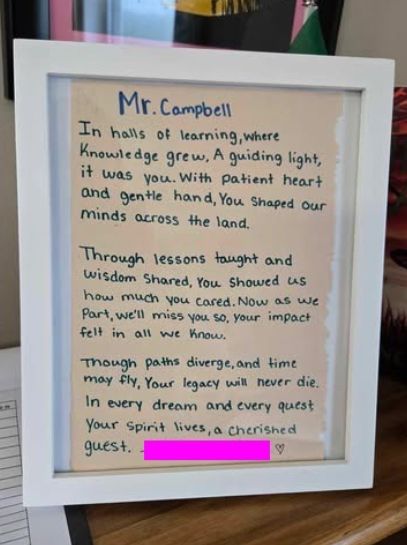 Mr. Campbell
In halls of learning, where
knowledge grew, A guiding light,
it was you. With patient heart
and gentle hand, You shaped our
minds across the land.
Through lessons taught and
wisdom shared, You showed us
how much you cared. Now as we
part, we'll miss you so, your impact
felt in all we know.
Though paths diverge, and time
may fly, Your legacy will never die.
In every dream and every quest
Your spirit lives, a cherished
guest. -